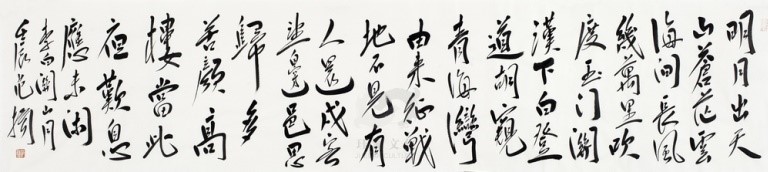 明月出天
山蒼茫雲
海間長風
幾萬里吹
度玉門關
漢下白登
道胡窺
青海灣
由来征戰
地不見有
人還戍客
望邊邑思
歸多
苦顏高
樓當此
夜歎息
應未閑
李白關山月
壬辰